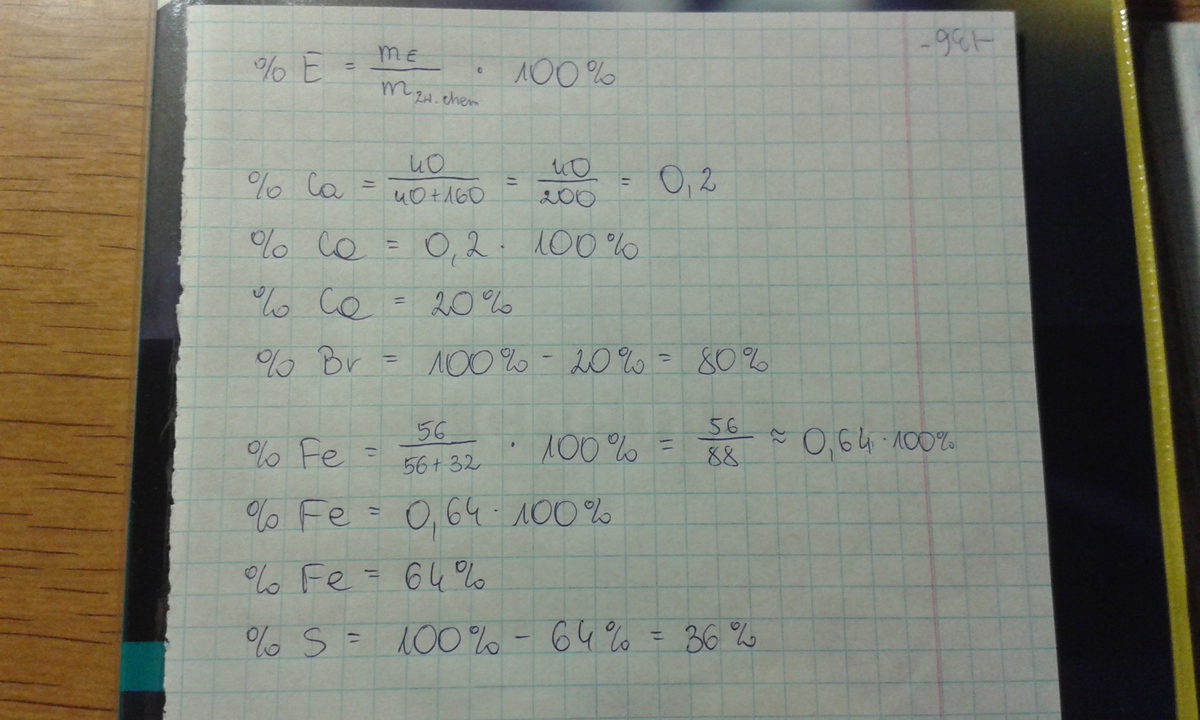 % E = mE / m zw. chem · 100%
% Ca = 40 / 40+160 = 40 / 200 = 0,2
% Ca = 0,2 · 100%
% Ca = 20%
% Br = 100% - 20% = 80%
% Fe = 56 / 56+32 · 100% = 56 / 88 ≈ 0,64 · 100%
% Fe = 0,64 · 100%
% Fe = 64%
% S = 100% - 64% = 36%